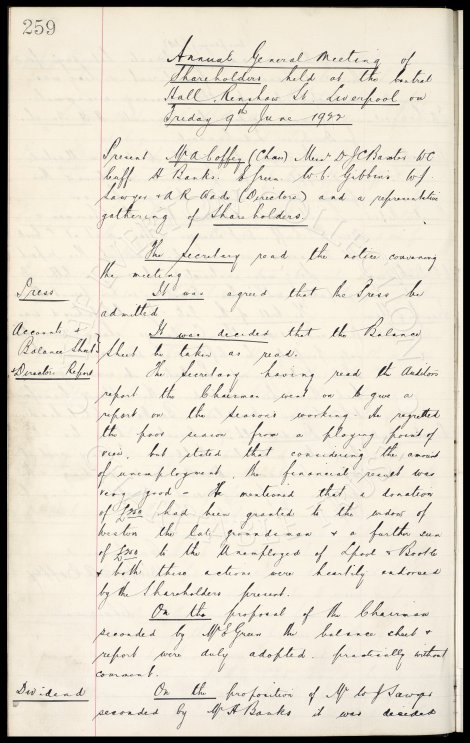 259
Annual General Meeting of
Shareholders held at the Central
Hall Renshaw St. Liverpool on
Friday 9th June 1922
Present Mr A Coffey (Chair) Messrs Dr J C Baxter WC
Cuff H Banks. E Green. W. C. Gibbins W J
Sawyer & A R Wade (Directors) and a representative
gathering of Shareholders.
The Secretary read the notice convening
the meeting
Press
It was agreed that the Press be
admitted
Accounts &
Balance Sheet
& Directors Report
It was decided that the Balance
Sheet be taken as read.
The Secretary having read the Auditors
report the Chairman went on to give a
report on the seasons working. He regretted
the poor season from a playing point of
view, but stated that considering the amount
of unemployment, the financial result was
very good – He mentioned that a donation
of had been granted to the widow of
Weston the late groundsman & a further sum
of to the Unemployed of Lpool & Bootle
& both these actions were heartily endorsed
by the Shareholders present.
On the proposal of the Chairman
seconded by Mr E Green the balance sheet &
report were duly adopted practically without
comment.
Dividend
On the proposition of Mr W J Sawyer
seconded by Mr H Banks it was decided